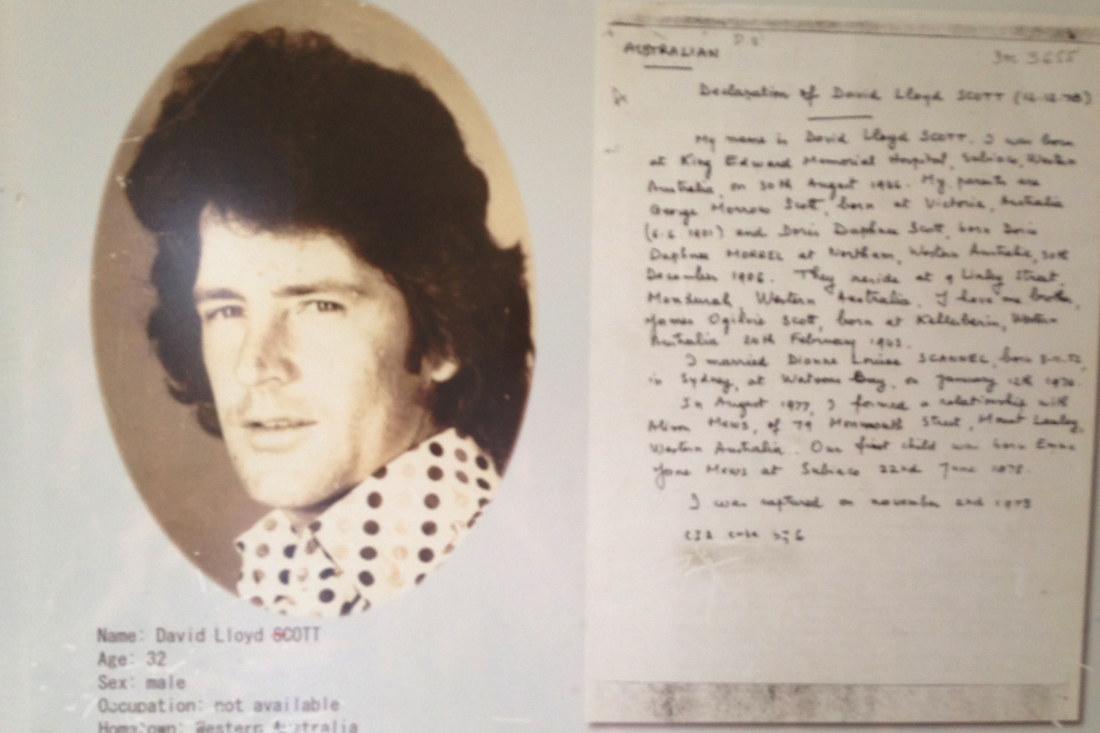 Name: David Lloyd SCOTT
Age: 32
Sex: male
Occupation: not available
Hometown: Western Australia
AUSTRALIAN
D.S
3655
Declaration of David Lloyd SCOTT (12-12-78)
My name is David Lloyd SCOTT. I was born
at King Edward Memorial Hospital, Subiaco, Western
Australia, on 30th August 1946. My parents are
George Morrow Scott, born at Victoria, Australia
(6.6 1901) and Doris Daphne Scott, born Doris
Daphne MORREL at Northam, Western Australia, 30th
December 1906. They reside at 9 Linley Street,
Mandurah, Western Australia. I have one brother,
James Ogilvie Scott, born at Kellerberin, Western
Australia 24th February 1943.
I married Dionne Louise SCANNEL, born
in Sydney, at Watsons Bay, on January 12th
In August 1977, I formed a relationship with
Alison Mews, of 79 Monmouth Street, Mount Lawley,
Western Australia. Our first child was born Emma
Jane Mews at Subiaco 22nd June 1978.
I was captured on november 2nd 1978
CIA code